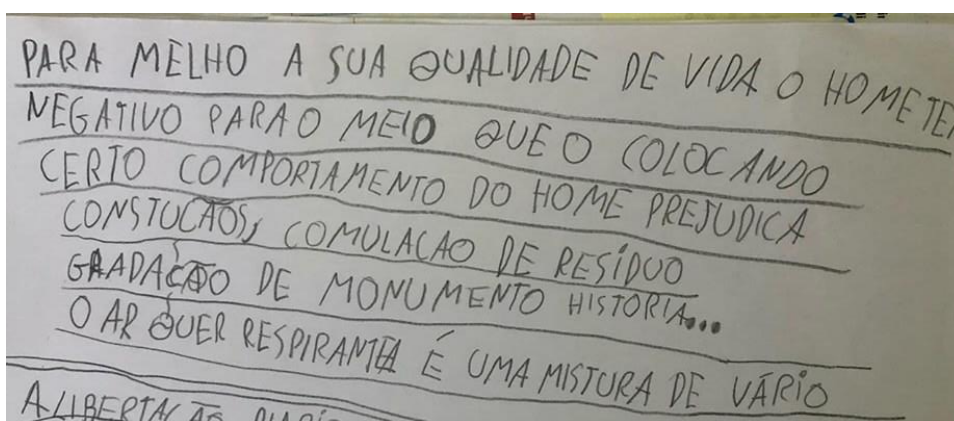 PARA MELHO A SUA QUALIDADE DE VIDA O HOME TEM
NEGATIVO PARA O MEIO QUE O COLOCANDO
CERTO COMPORTAMENTO DO HOME PREJUDICA
CONSTUCAOS, COMULACAO DE RESÍDUO
GRADAÇÃO DE MONUMENTO HISTORIA...
O AR QUER RESPIRANTEA É UMA MISTURA DE VÁRIO
A LIBERTAÇÃO